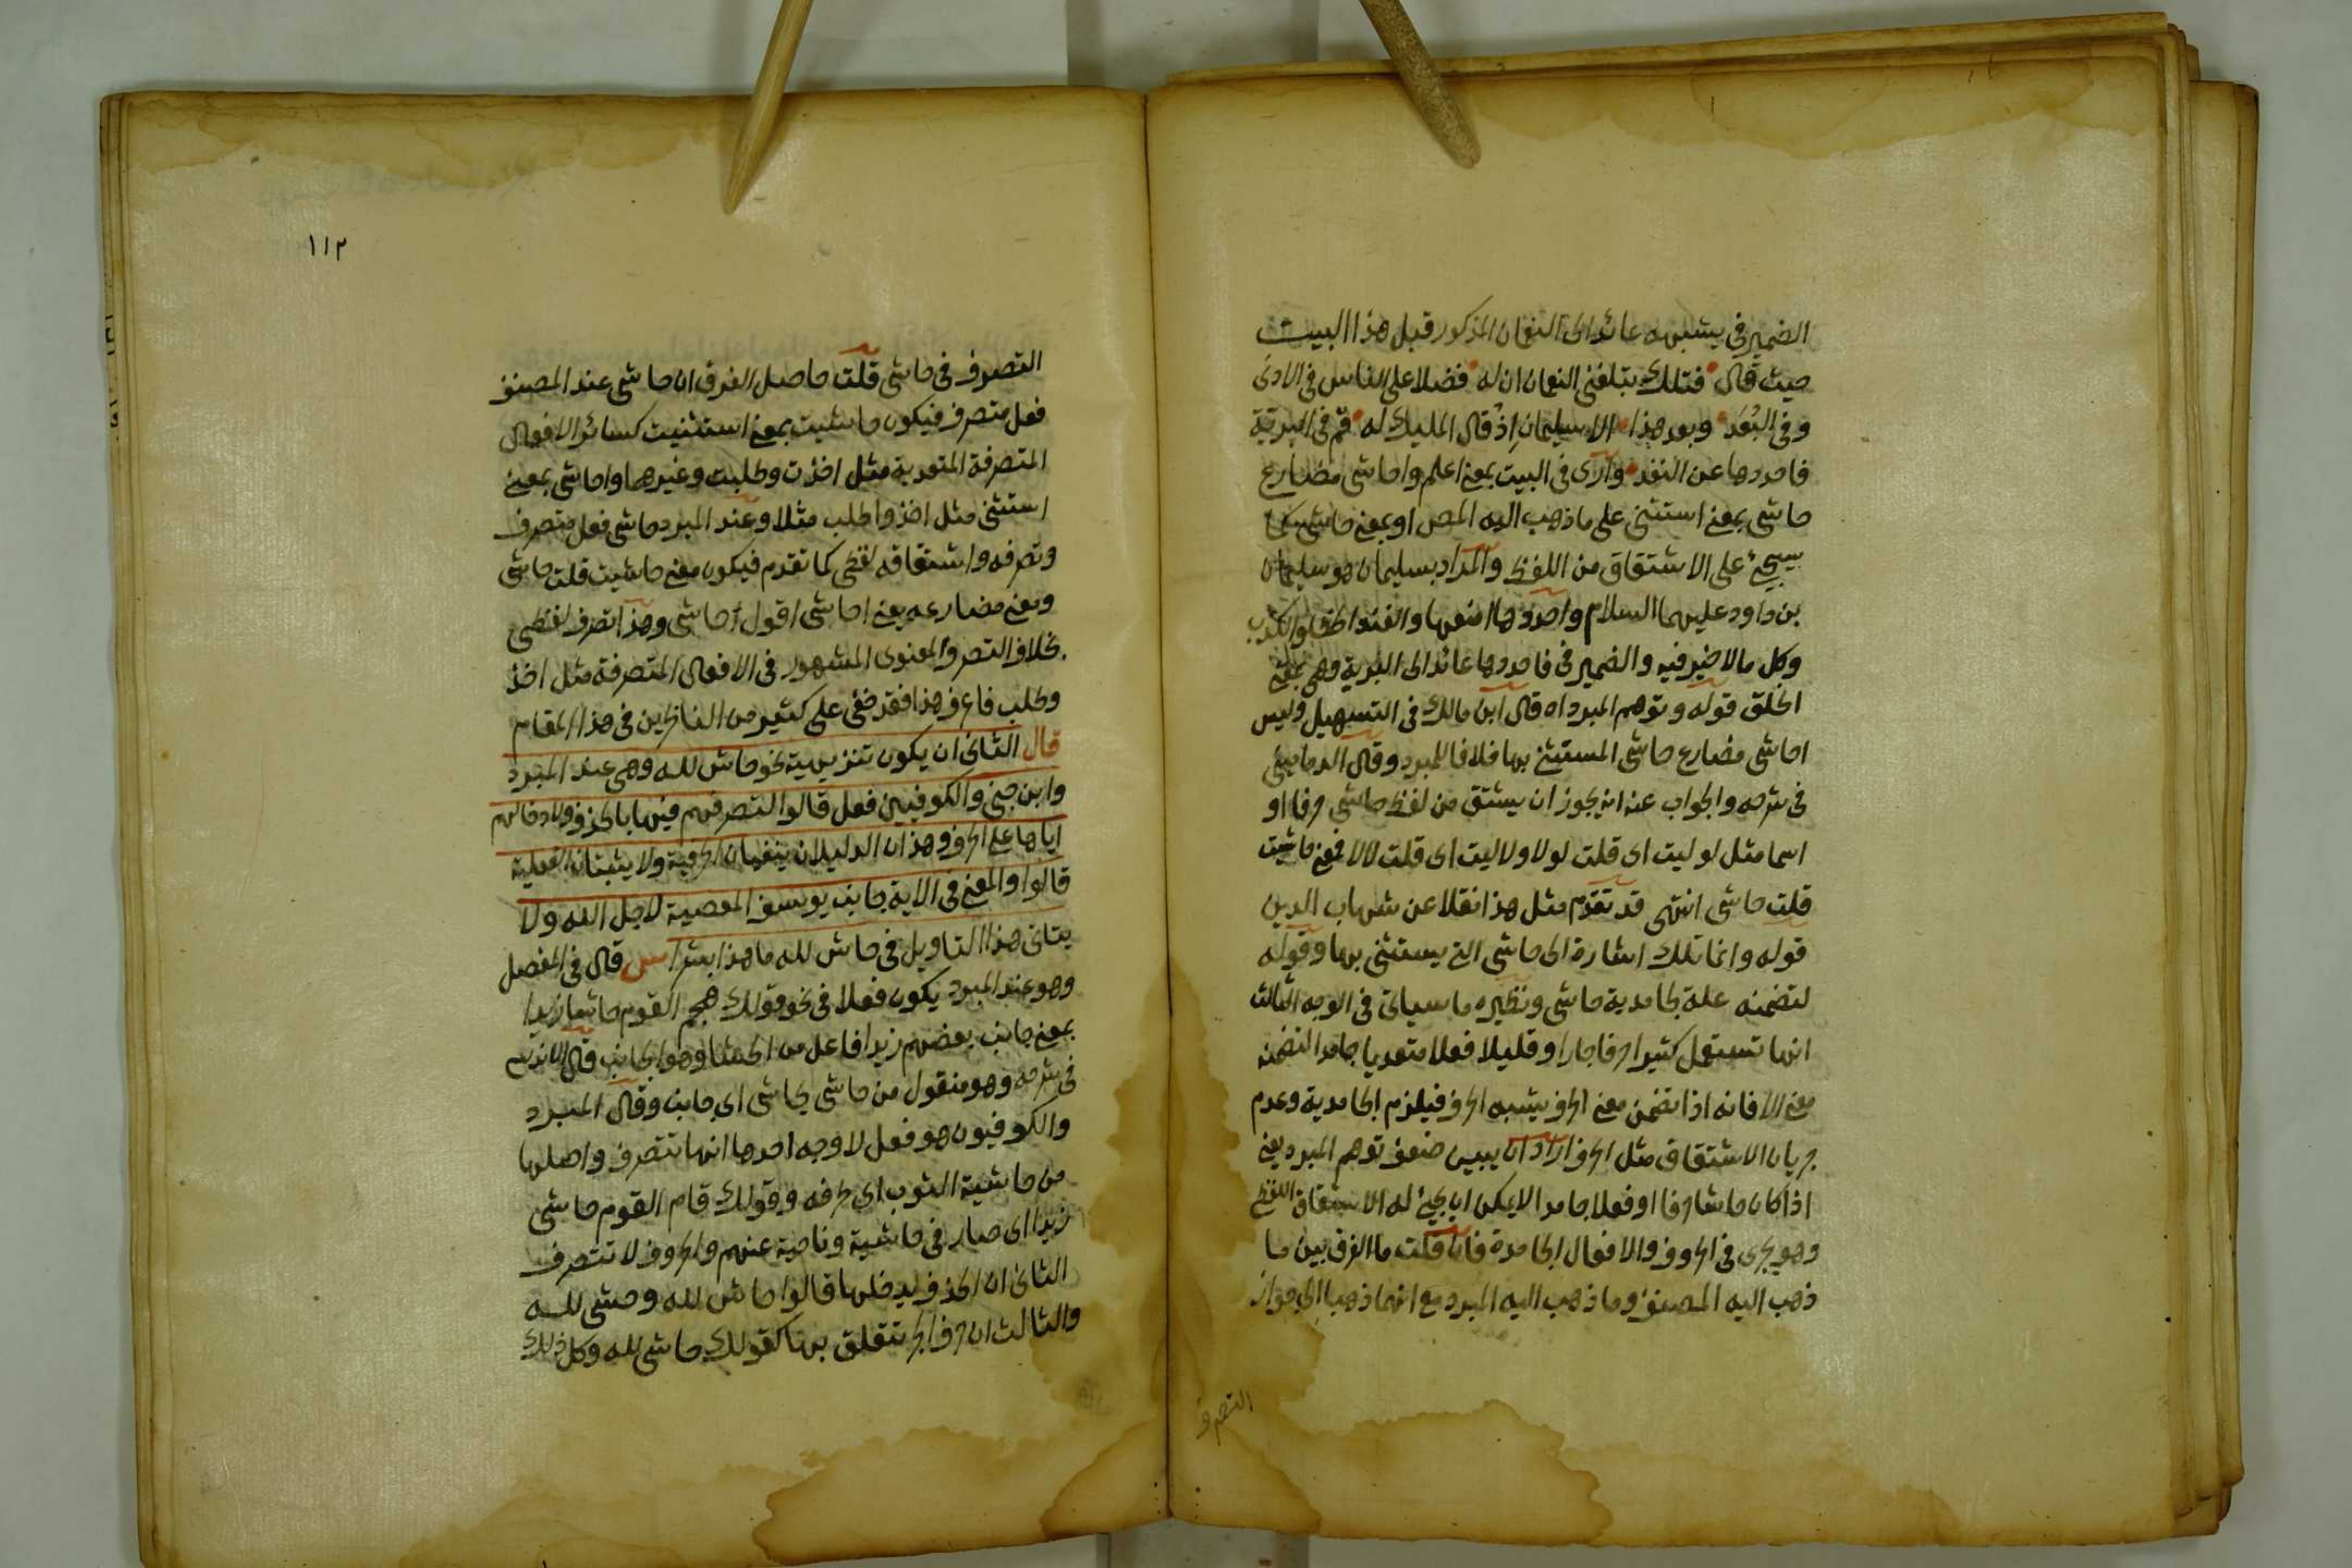 الضمير فى يشبهه عائد الى النعمان المذكور قبل هذا البيت
حيث قال فتلك تبلغنى النعمان ان له فضلا على الناس فى الادنى
وفى البُعَد وبعد هذا الا سليمان اِذْ قال المليك له قم فى البرية
فاحددها عن الفند وارى فى البيت بمعنى اعلم واحاشى مضارع
حاشى بمعنى استثنى على ما ذهب اليه المص او بمعنى حاشى كما
سيجئ على الاشتقاق من اللفظ والمراد بسليمان هو سليمان
بن داود عليهما السلام واحددها امنعها والفند الخطا والكذب
وكل ما لا خير فيه والضمير فى فاحددها عائد الى البرية وهى بمعنى
الخلق قوله وتوهم المبرد اه قال ابن مالك فى التسهيل وليس
احاشى مضارع حاشى المستثنى بها خلافا للمبرد وقال الدمامينى
فى شرحه والجواب عنه انه يجوز ان يشتق من لفظ حاشى حرفا او
اسما مثل لوليت اى قلت لولا ولاليت اى قلت لالا فمعنى حاشيت
قلت حاشى انتهى قد تقدم مثل هذا نقلا عن شهاب الدين
قوله وانما تلك اشارة الى حاشى التى يستثنى بها وقوله
لتضمنه علة لجامدية حاشى ونظيره ما سياتى فى الوجه الثالث
انها تستعمل كثيرا حرفا جارا وقليلا فعلا متعديا جامدا لتضمنه
معنى الا فانه اذا تضمن معنى الحرف يشبه الحرف فيلزم الجامدية وعدم
جريان الاشتقاق مثل الحرف اراد ان يبين ضعف توهم المبرد يعنى
اذا كان حاشا حرفا او فعلا جامدا لا يمكن ان يجئ له الاشتقاق اللفظى
وهو يجرى فى الحروف والافعال الجامدة فان قلت ما الفرق بين ما
ذهب اليه المصنف وما ذهب اليه المبرد مع انهما ذهبا الى جواز
التصرف
١١٢
التصرف فى حاشى قلت حاصل الفرق ان حاشى عند المصنف
فعل متصرف فيكون حاشيت بمعنى استثنيت كسائر الافعال
المتصرفة المتعدية مثل اخذت وطلبت وغيرهما واحاشى بمعنى
استثنى مثل اخذ واطلب مثلا وعند المبرد حاشى فعل متصرف
وتصرفه واشتقاقه لفظى كما تقدم فيكون معنى حاشيت قلت حاشى
ومعنى مضارعه يعنى احاشى اقول حاشى وهذا تصرف لفظى
بخلاف التصرف المعنوى المشهور فى الافعال المتصرفة مثل اخذ
وطلب فاعرف هذا فقد خفى على كثير من الناظرين فى هذا المقام
قال الثانى ان يكون تنزيهية نحو حاش لله وهى عند المبرد
وابن جنى والكوفيين فعل قالوا لتصرفهم فيها بالحذف ولادخالهم
اياها على الحرف وهذان الدليلان ينفيان الحرفية ولا يثبتان الفعلية
قالوا والمعنى فى الاية جانب يوسف المعصية لاجل الله ولا
يتاتى هذا التاويل فى حاش لله ما هذا بشرا ش قال فى المفصل
وهو عند المبرد يكون فعلا فى نحو قولك هجم القوم حاشا زيدا
بمعنى جانب بعضهم زيدا فاعل من الحشا وهو الجانب قال الاندلسى
فى شرحه وهو منقول من حاشى يحاشى اى جانب وقال المبرد
والكوفيون هو فعل لاوجه احدها انها تتصرف واصلها
من حاشية الثوب اى طرفه وقولك قام القوم حاشى
زيدا اى صار فى حاشية وناحية عنهم والحروف لا تتصرف
الثانى ان الحذف يدخلها قالوا حاش لله وحشى لله
والثالث ان حرف الجر يتعلق بها كقولك حاشى لله وكل ذلك